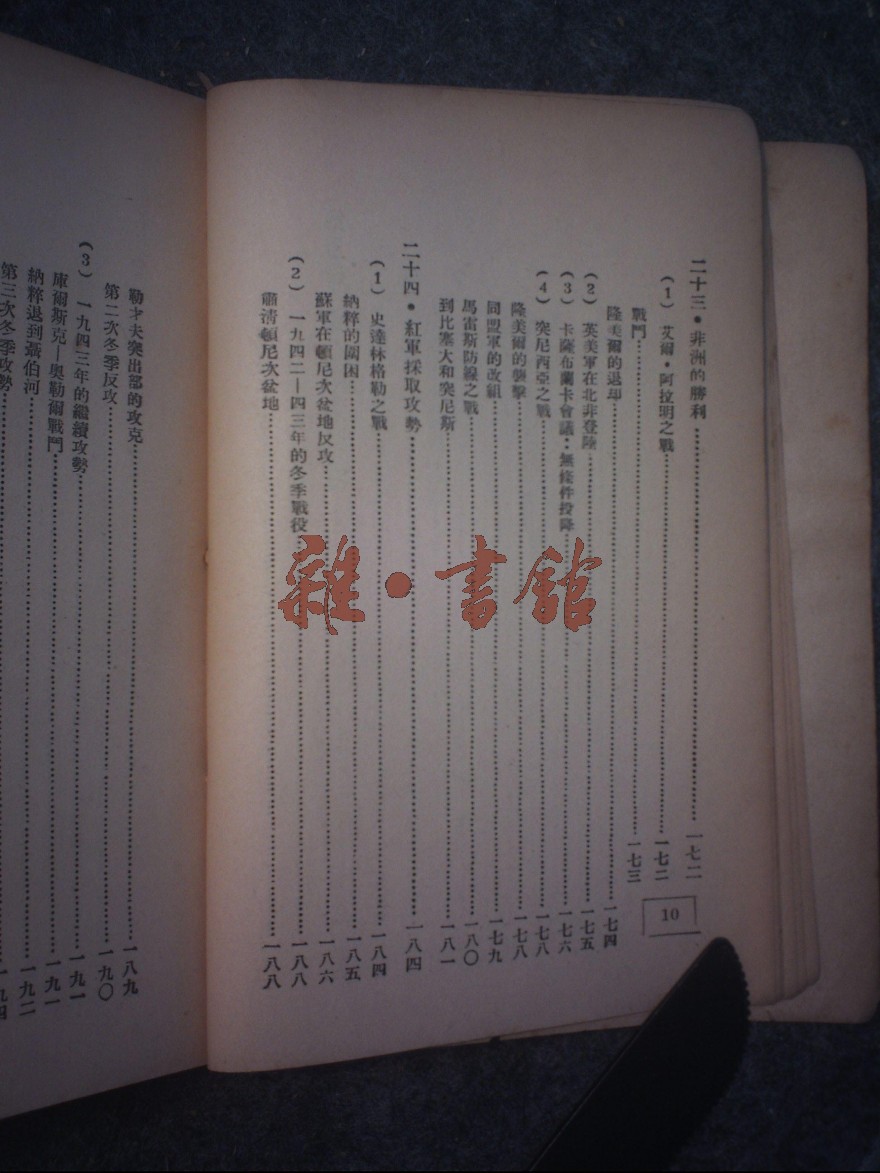 二十三・非洲的勝利……一七二
(1)艾爾・阿拉明之戰……一七二
戰鬥……一七三
隆美爾的退却……一七四
(2)英美軍在北非登陸……一七五
(3)卡薩布蘭卡會議・無條件投降……一七六
(4)突尼西亞之戰……一七八
隆美爾的襲擊……一七八
同盟軍的改組……一七九
馬雷斯防線之戰……一八〇
到比塞大和突尼斯……一八一
二十四・紅軍採取攻勢……一八四
(1)史達林格勒之戰……一八四
納粹的闗困……一八五
蘇軍在頓尼次盆地反攻……一八六
(2)一九四二—四三年的冬季戰役……一八八
肅清頓尼次盆地……一八八
10
勒才夫突出部的攻克……一八九
第二次冬季反攻……一九〇
(3)一九四三年的繼續攻勢……一九一
庫爾斯克—奧勒爾戰鬥……一九一
納粹退到聶伯河……一九二
第三次冬季攻勢……一九四
雜・書館